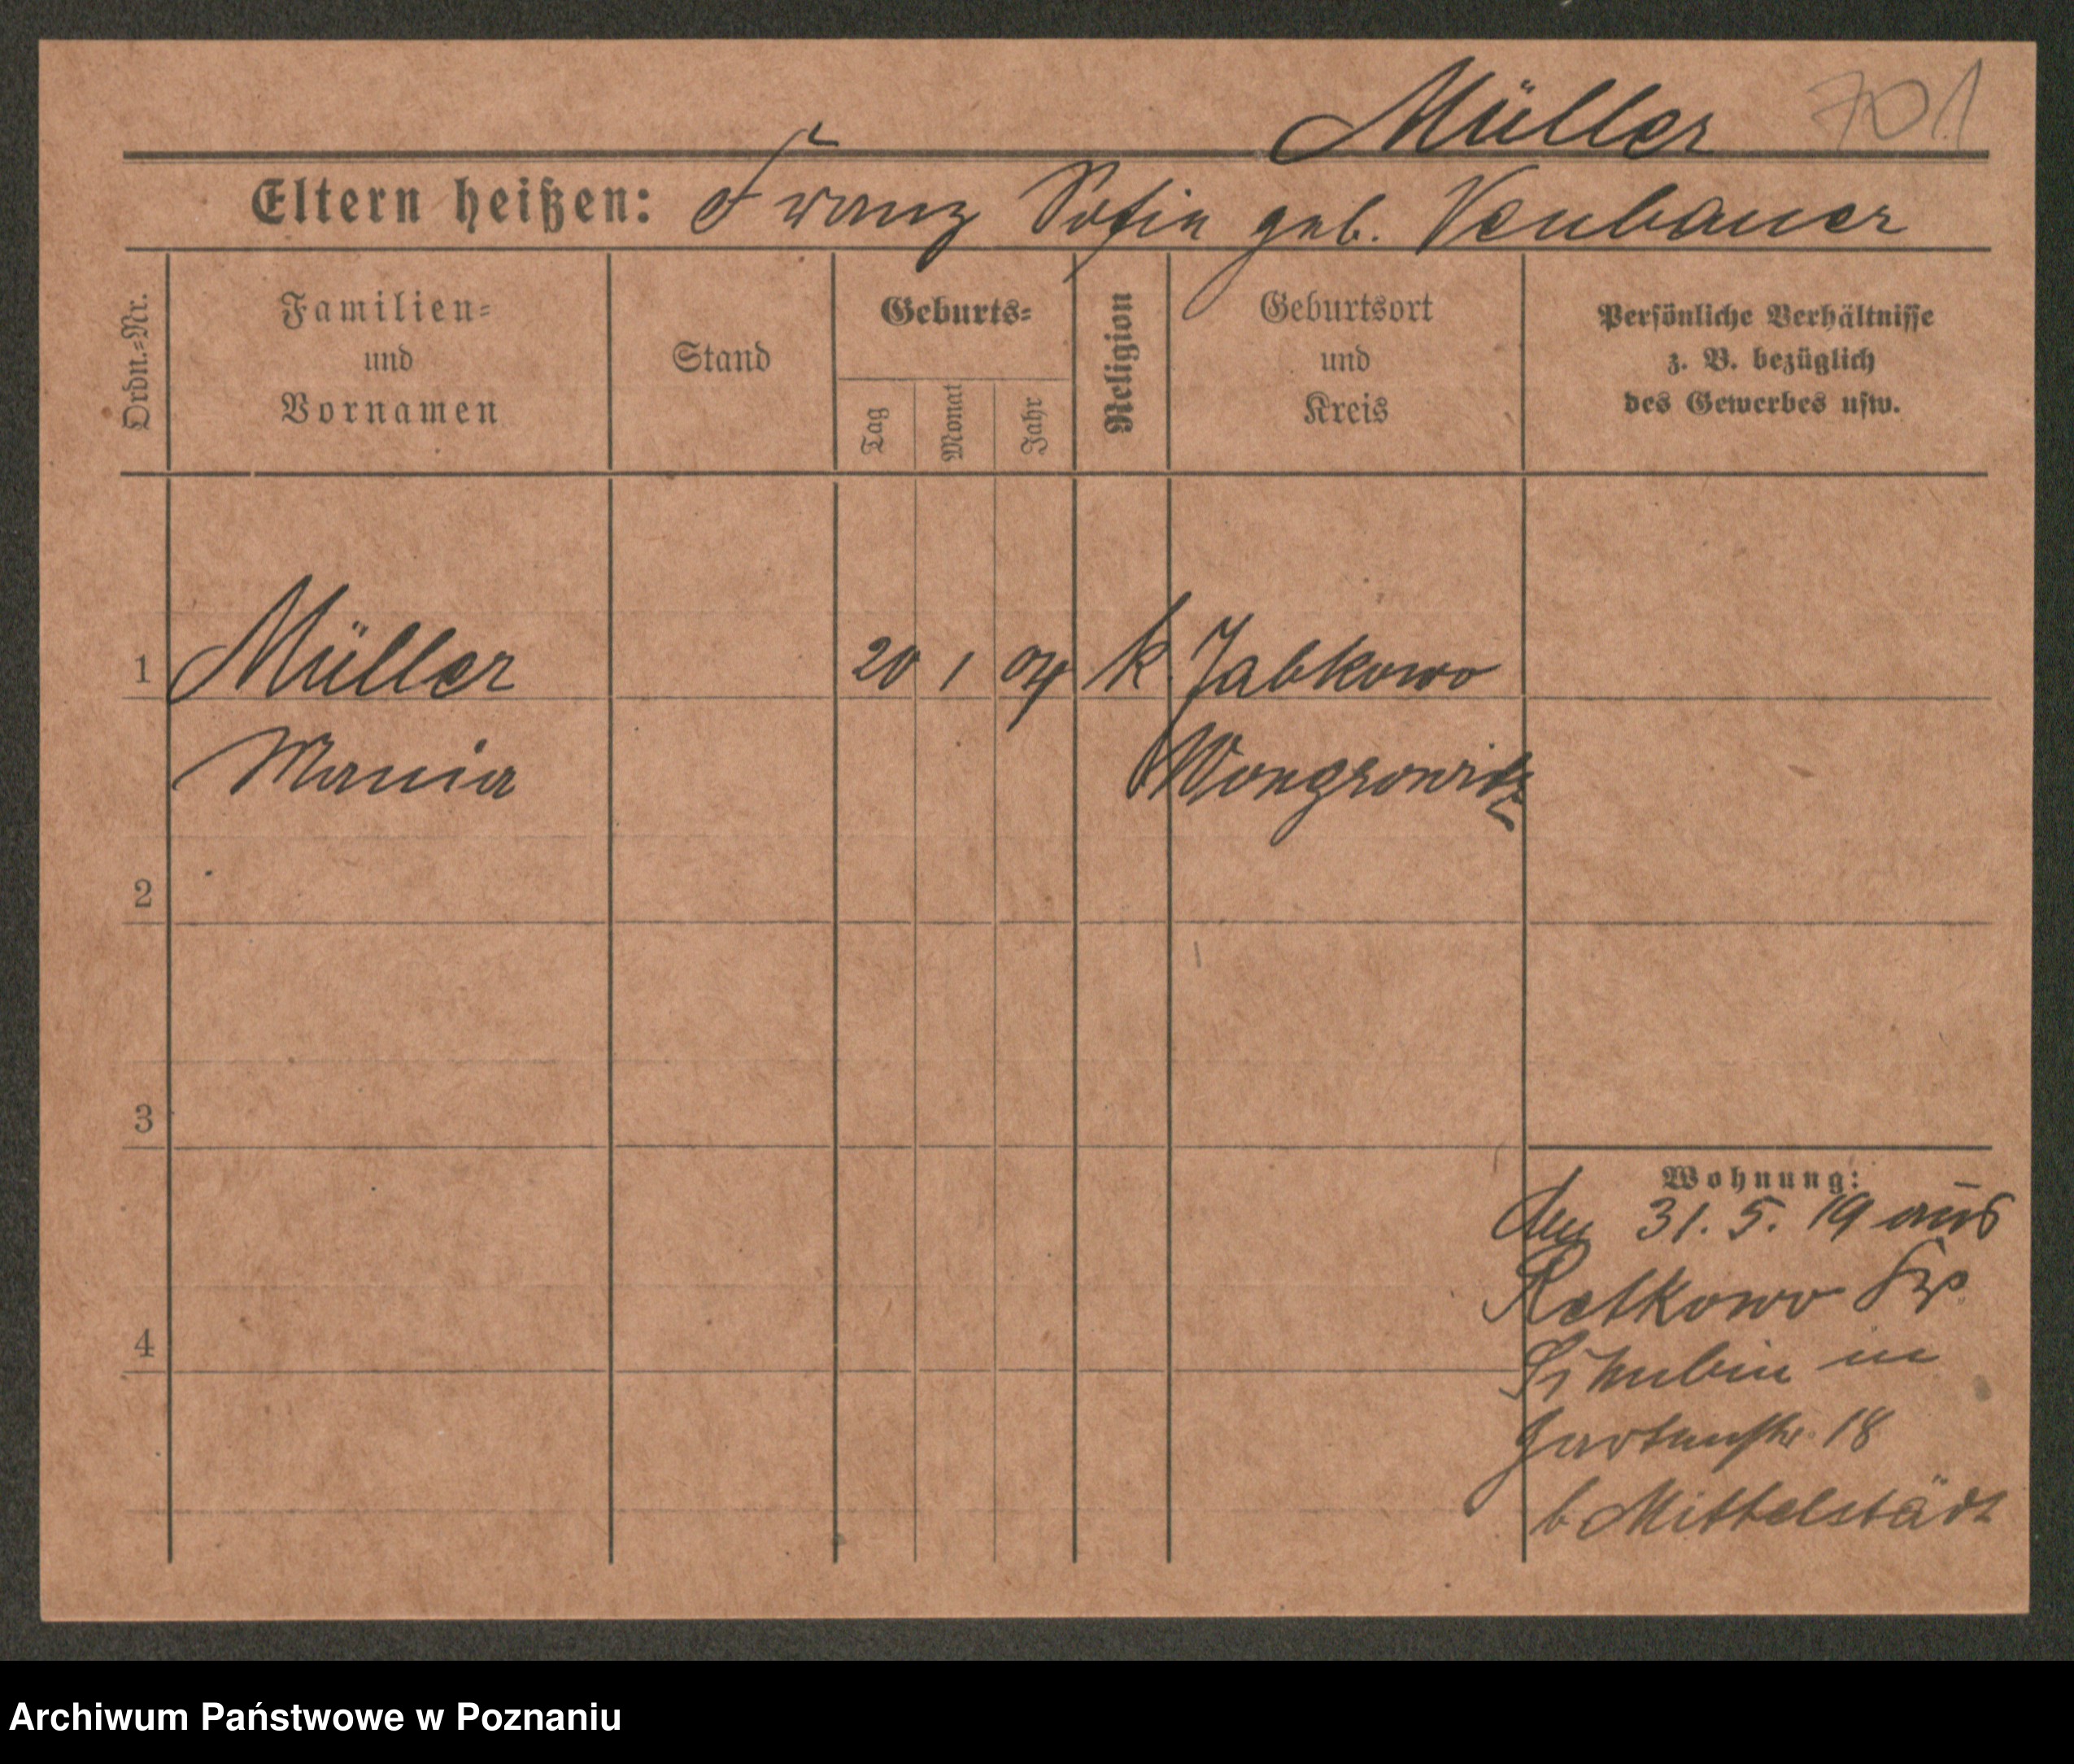 Müller 701
Eltern heißen: Franz Sofia geb. Neubauer
Ordn.-Nr.
Familien-
und
Vornamen
Stand
Geburts-
Tag
Monat
Jahr
Religion
Geburtsort
und
Kreis
Persönliche Verhältnisse
z. B. bezüglich
des Gewerbes usw.
1 Müller 20 1 04 k. Jabkowo
Maria Wongrowitz
2
3
4
Wohnung:
den 31. 5. 19 aus
Retkowo
Schubin in
Gartenstr. 18
b Mittelstädt
Archiwum Państwowe w Poznaniu